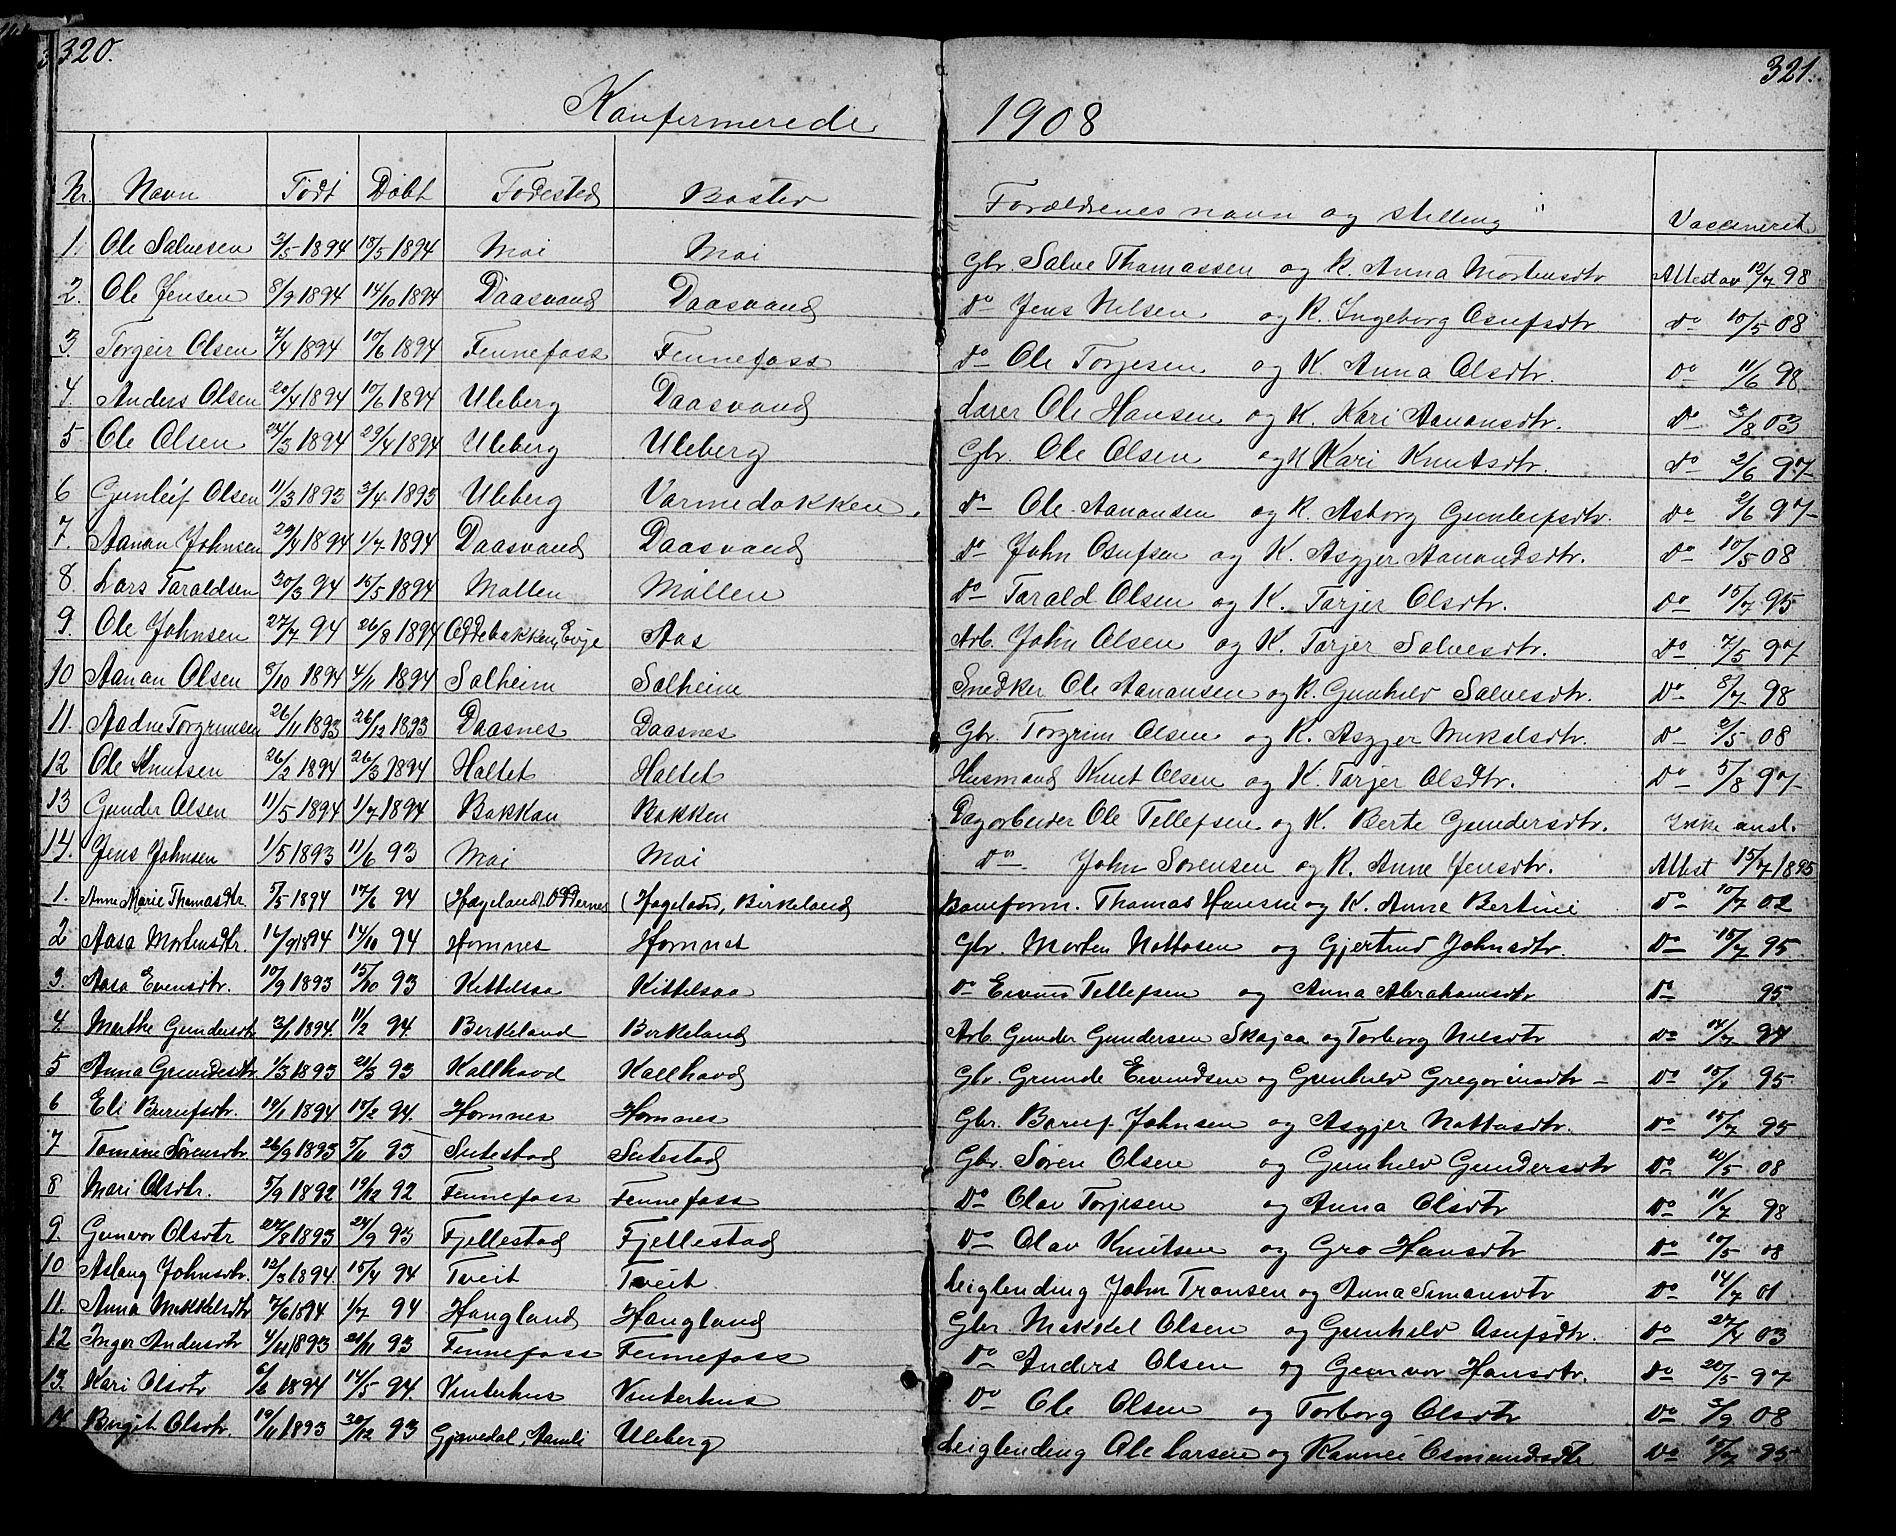 320.
321.
Konfermerede 1908
Nr Navn Født Døbt Fødested Bosted Forældrenes navn og stilling Vaccineret
1. Ole Salvesen 2/5 1894 18/5 1894 Moi Moi Gbr. Salve Thomassen og K. Anna Mortensdtr Attest av 12/7 98
2. Ole Jensen 8/9 1894 14/10 1894 Daasvand Daasvand do Jens Nilsen og K. Ingeborg Osufsdtr do 10/5 08
3. Torgeir Olsen 7/4 1894 10/6 1894 Fennefoss Fennefoss do Ole Torjesen og K. Anna Olsdtr. do 11/6 98
4. Anders Olsen 20/4 1894 10/6 1894 Uleberg Daasvand Lærer Ole Hansen og K. Kari Aanonsdtr. do 3/8 03
5 Ole Olsen 24/3 1894 29/4 1894 Uleberg Uleberg Gbr. Ole Olsen og K Kari Knutsdtr. do 2/6 97
6 Gunleif Olsen 11/3 1893 3/4 1893 Uleberg Varmedokken. do Ole Aanonsen og K. Asborg Gunleifsdtr. do 2/6 97
7. Aanon Johnsen 29/4 1894 1/7 1894 Daasvand Daasvand do John Osufsen og K. Asgjer Aanondsdtr. do 10/5 08
8. Lars Taraldsen 30/3 94 15/5 1894 Mollen Mollen do Tarald Olsen og K. Tarjer Olsdtr. do 15/7 95
9. Ole Johnsen 27/7 94 26/8 1894 Oddebakken, Evje Aas Arb. John Olsen og K. Tarjer Salvesdtr. do 7/5 97
10 Aanon Olsen 8/10 1894 4/11 1894 Solheim Solheim Snedker Ole Aanonsen og K. Gunhild Salvesdtr. do 8/7 98
11. Aadne Torgrimsen 26/11 1893 26/12 1893 Daasnes Daasnes Gbr. Torgrim Olsen og K. Asgjer Mikalsdtr. do 2/5 08
12 Ole Knutsen 26/2 1894 26/3 1894 Holtet Holtet Husmand Knut Olsen og K. Tarjer Olsdtr. do 5/8 97
13 Gunder Olsen 11/5 1894 1/7 1894 Bakkan Bakken Dagarbeider Ole Tellefsen og K. Berte Gundersdtr. Ikke anst.
14. Jens Johnsen 1/5 1893 11/6 93 Moi Moi do John Sørensen og K. Anne Jensdtr. Attest 15/7 1895
1. Anne Marie Thomasdtr. 5/5 1894 17/6 94 (Hægeland). Oddernes (Hægeland), Birkeland Baneform. Thomas Hansen og K. Anne Bertine do 10/7 02
2 Aasa Mortensdtr. 16/9 1894 14/10 94 Hornnes Hornnes Gbr. Morten Nottosen og Gjertrud Johnsdtr. do 15/7 95
3. Aasa Evensdtr. 10/9 1893 15/10 93 Kittelsaa Kittelsaa do Eivind Tellefsen og Anna Abrahamsdtr do 95
4. Marthe Gundersdtr 2/1 1894. 11/2 94 Birkeland Birkeland Arb. Gunder Gundersen Skajaa og Torborg Nilsdtr do 14/7 94
5 Anna Grundesdtr. 1/3 1893 21/3 93 Kallhovd Kallhovd Gbr. Grunde Eivindsen og Gunhild Gregoriusdtr do 15/7 95
6 Eli Berufsdtr. 19/1 1894 18/2 94. Hornnes Hornnes Gbr. Beruf Johnsen og Asgjer Nottosdtr. do 15/7 95
7 Tomine Sørensdtr 26/9 1893 5/11 93 Sutestad Sutestad Gbr. Søren Olsen og Gunhild Gundersdtr do 10/5 08
8 Mari Olsdtr. 5/9 1892 19/12 92 Fennefoss Fennefoss do Olav Torjesen og Anna Olsdtr do 11/7 98
9. Gunvor Olsdtr 27/8 1893 24/9 93 Fjellestad Fjellestad do Olav Knutsen og Gro Hansdtr do 10/5 08
10 Aslaug Johnsdtr. 12/3 1894 15/4 94 Tveit Tveit. Leiglending John Tronsen og Anna Simonsdtr do 14/7 01
11. Anna Mikkelsdtr 7/6 1894 1/7 94 Haugland Haugland Gbr Mikkel Olsen og Gunhild Osufsdtr. do 27/4 03
12 Inger Andersdtr 4/11 1893 21/11 93 Fennefoss Fennefoss do Anders Olsen og Gunvor Hansdtr. do 20/5 97
13. Kari Olsdtr 6/2 1894 14/5 94. Vinterhus Vinterhus do Ole Olsen og Torborg Olsdtr do 3/9 08
14 Birgit Olsdtr. 19/11 1893 30/12 93 Gjøvedal, Aamli Uleberg Leiglending Ole Larsen og Ronnei Osmundsdtr do 15/7 95